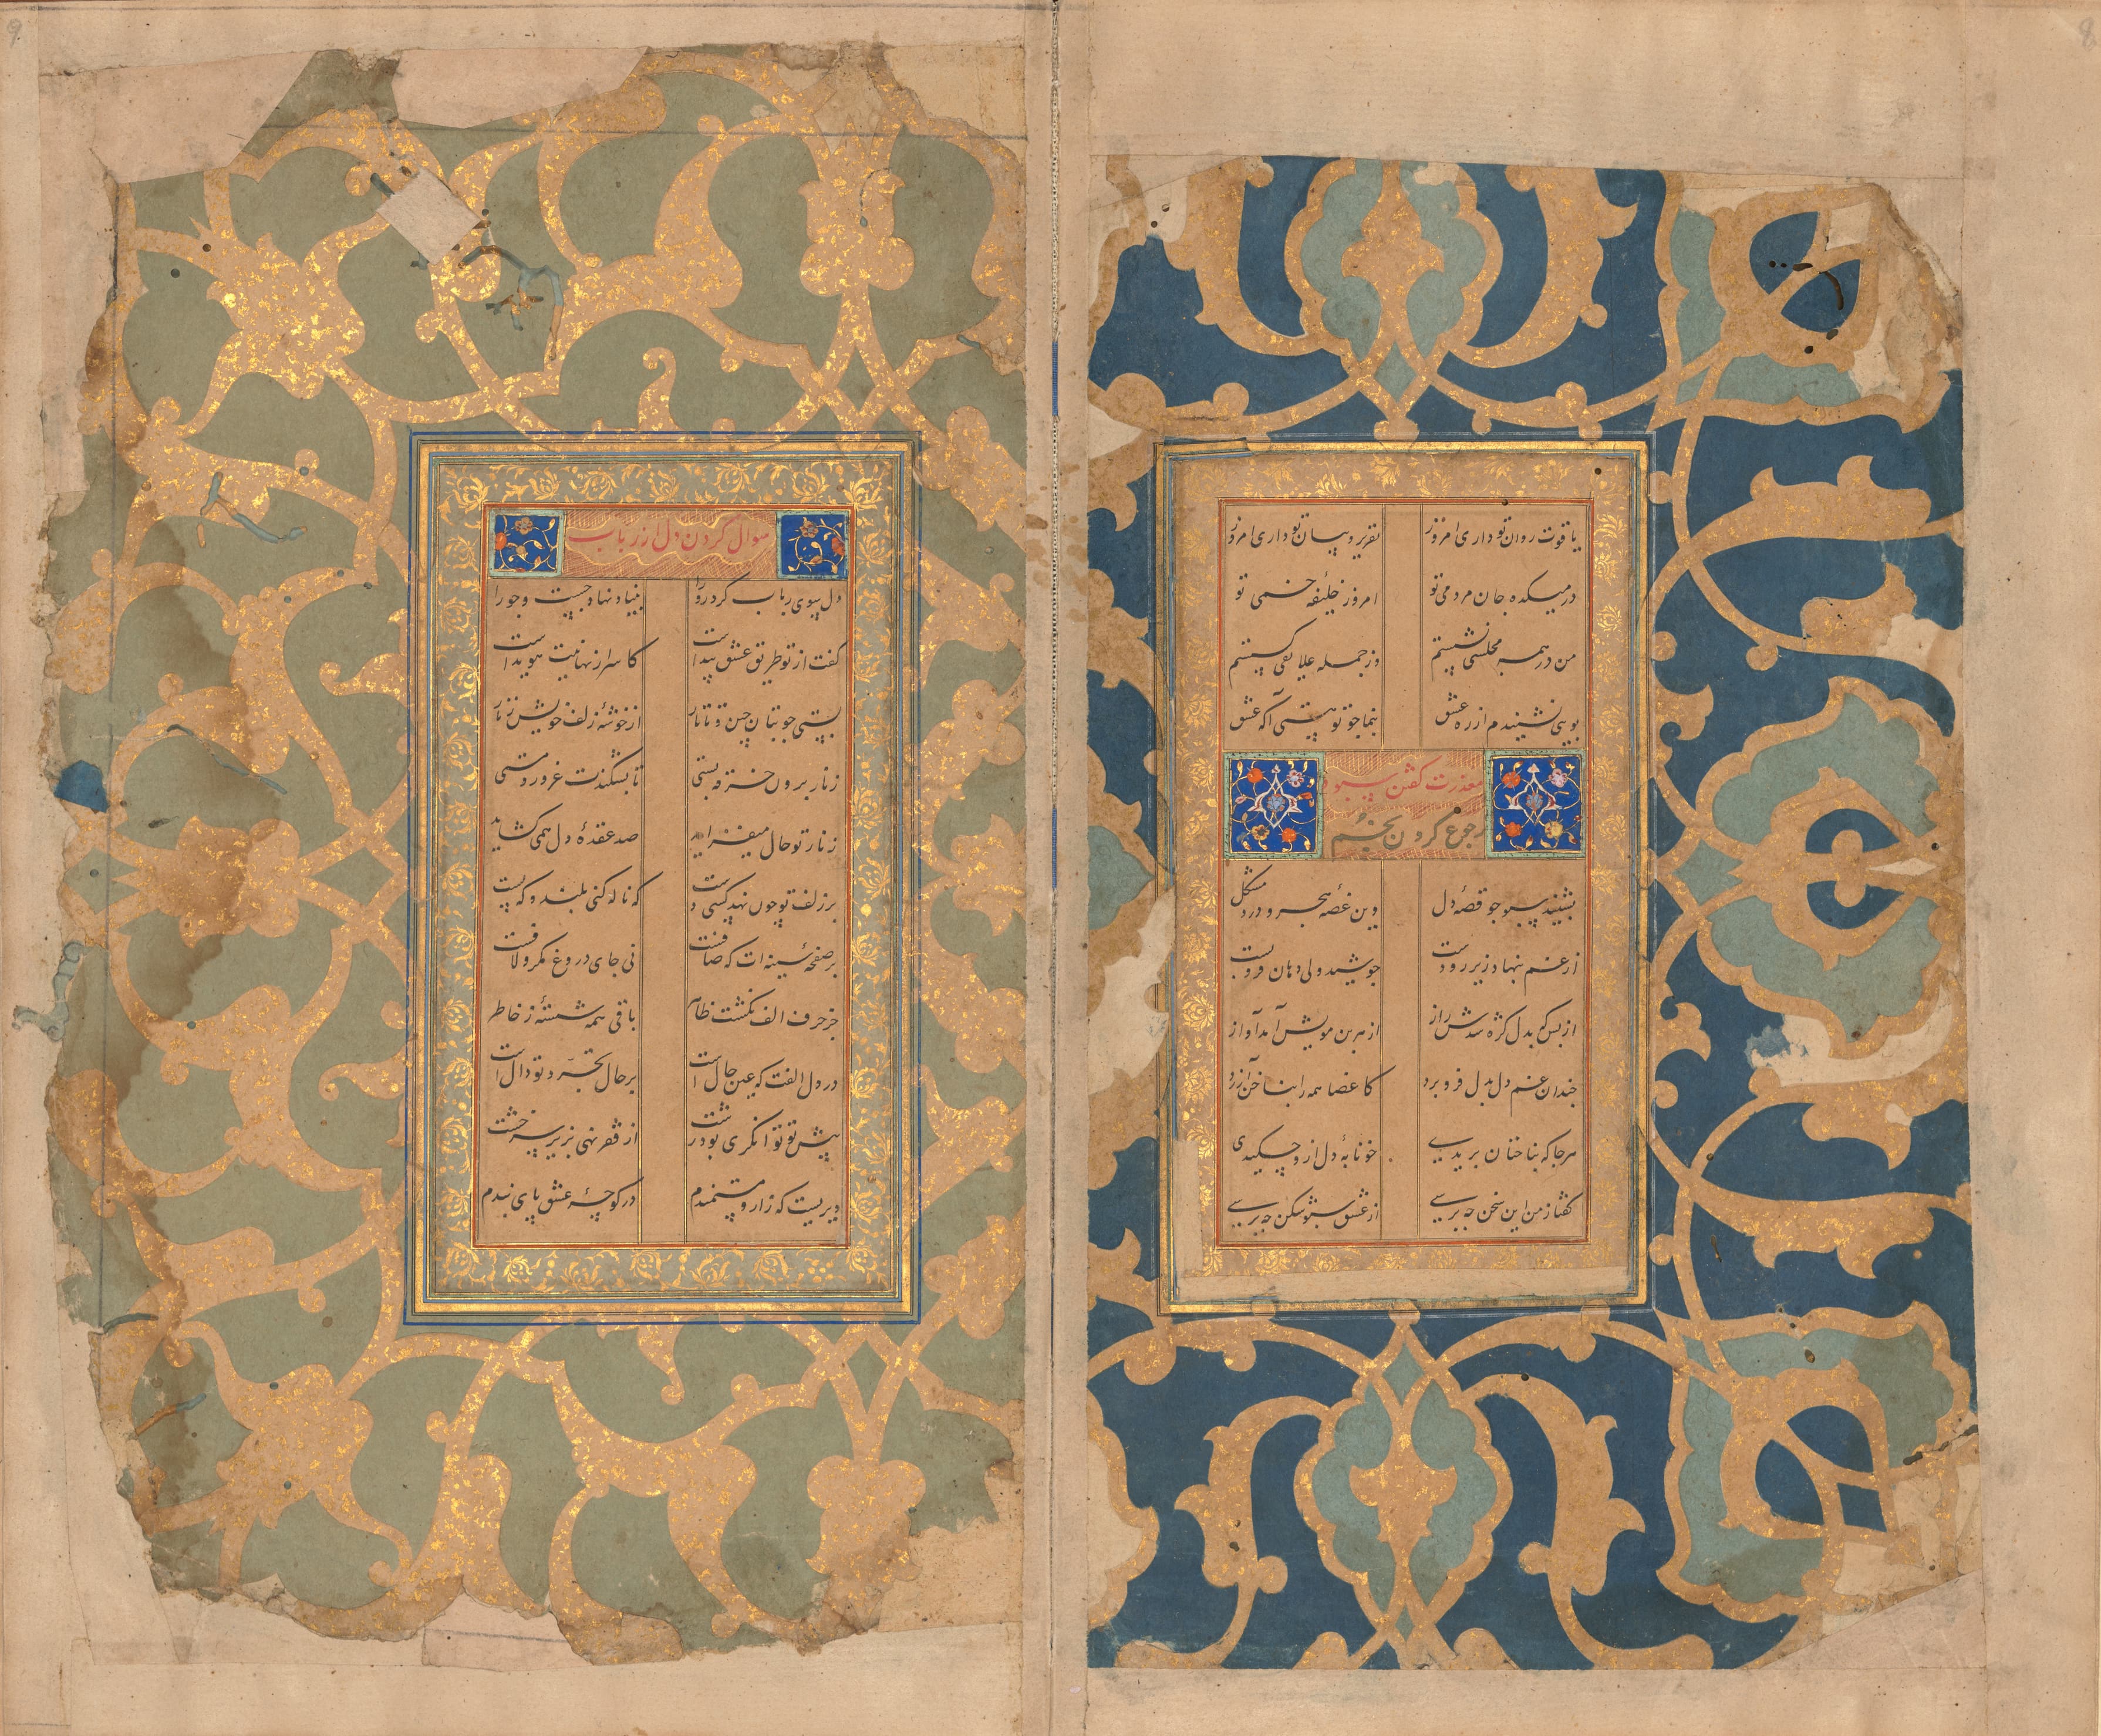 8
یاقوت روان تو داری امروز تقریر و بیان تو داری امروز
در میکده جان مردمی تو امروز خلیفه خمی تو
من در همه مجلسی نشستم وز جمله علایقی گسستم
بنما چو تو هستی آگه عشق
معذرت گفتن سبو و
رجوع کردن بخم
بشنید سبو چو قصهٔ دل وین غصهٔ هجر و درد مشکل
از غم بنهاد زیر رو دست جوشید ولی دهان فرو بست
از بس که بدل گره شدش راز از هر بن مویش آمد آواز
چندان غم دل بدل فرو برد کاعضا همه را بناخن آزرد
هر جا که بناخنان بریدی خونابهٔ دل ازو چکیدی
گفتا ز من این سخن چه پرسی از عشق سبوشکن چه پرسی
9
سوال کردن دل از رباب
دل سوی رباب کرد رو را بنیاد نهاد جست و جو را
گفت از تو طریق عشق پیداست کاسرار نهانیت هویداست
بستی چو بتان چین و تاتار از خوشهٔ زلف خویش زنار
زنار برون خرقه بستی تا بشکندت غرور و مستی
زنار تو حال میفزاید صد عقدهٔ دل همی گشاید
بر زلف تو چون نهد کسی دست که ناله کنی بلند و که پست
بر صفحهٔ سینه‌ات که صافست نی جای دروغ و مکر و لافست
جز حرف الف نگشت ظاهر باقی همه شسته‌ای ز خاطر
در دل الفت که عین حال است بر حال تجرد تو دال است
پیش تو توانگری بود زشت از فقر نهی بزیر سر خشت
دیریست که زار و مستمندم در کوچهٔ عشق پای بندم